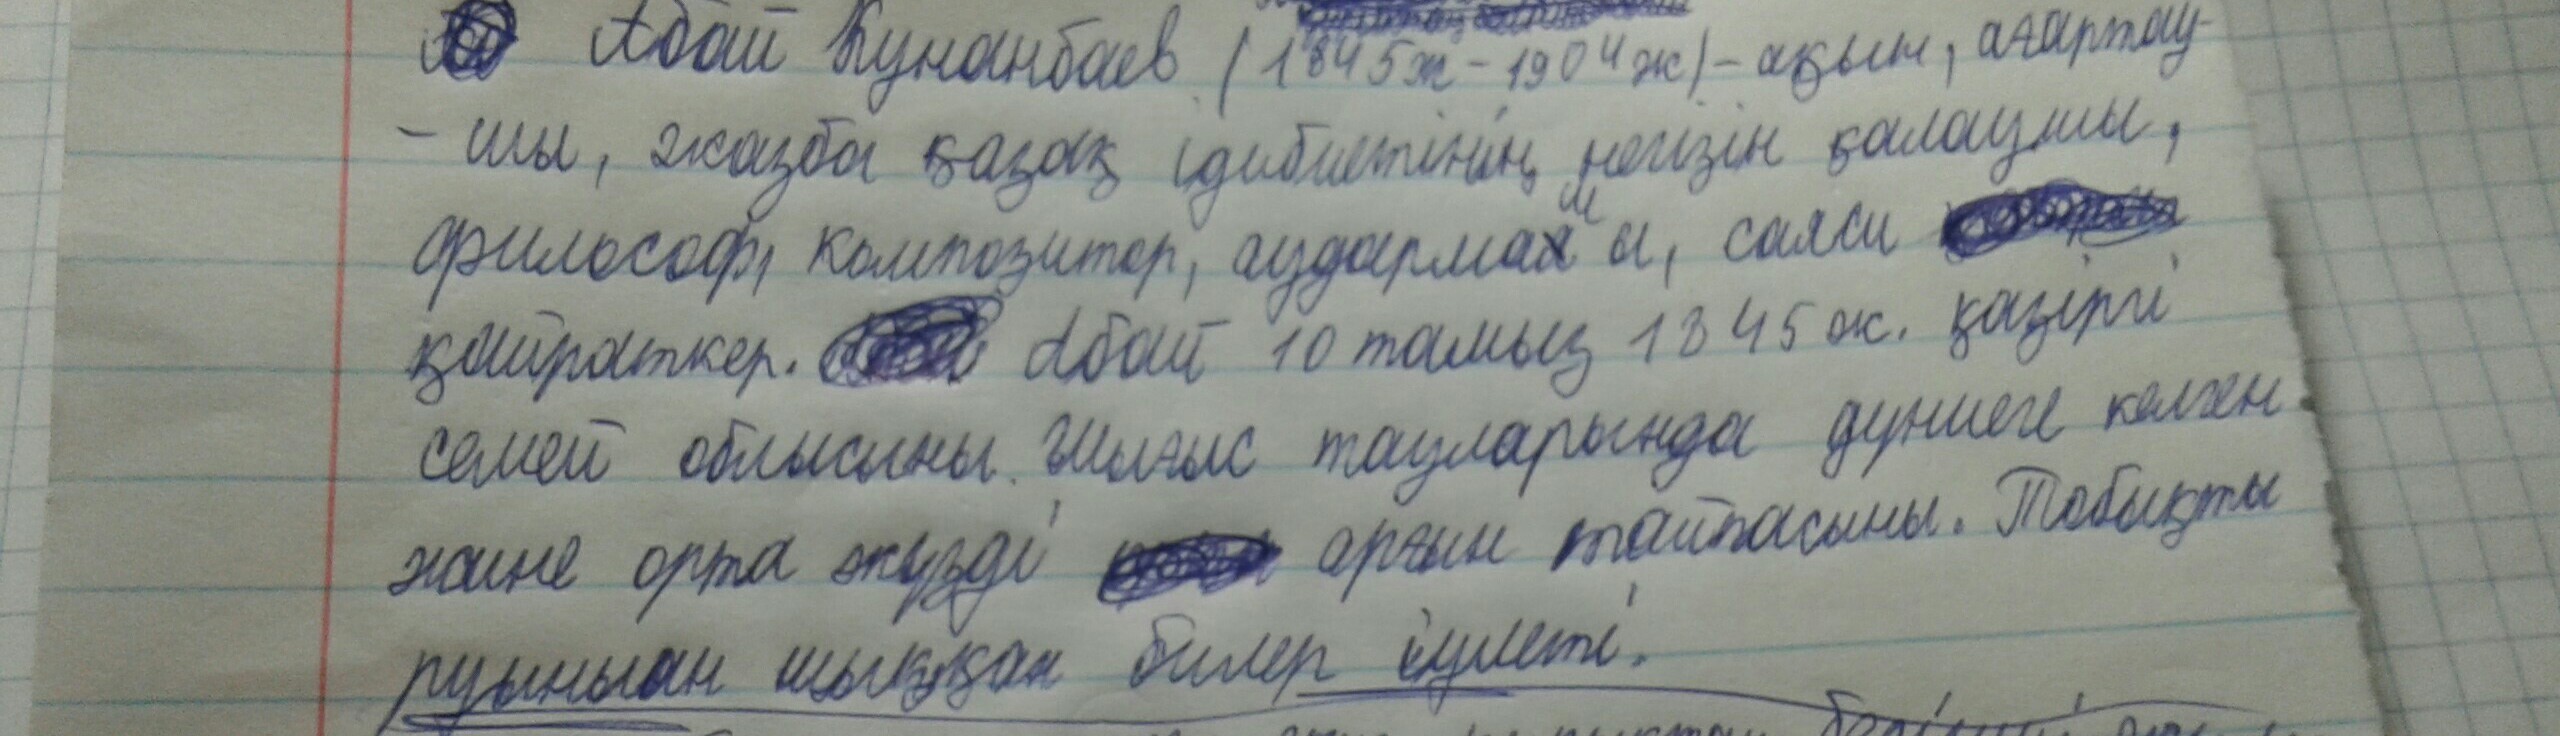 Абай Кунанбаев (1845ж - 1904ж) - ақын, ағартау-
- шы, жазба қазақ әдибиетінің негізін қалаушы,
философ, композитор, аудармашы, саяси
қайраткер. Абай 10 тамыз 1845 ж. қазіргі
семей облысыны. Шығыс тауларында дуниеге келген
жәине орта жузді арғын тайпасыны. Тобықты
руыныан шыққан билер әулеті.